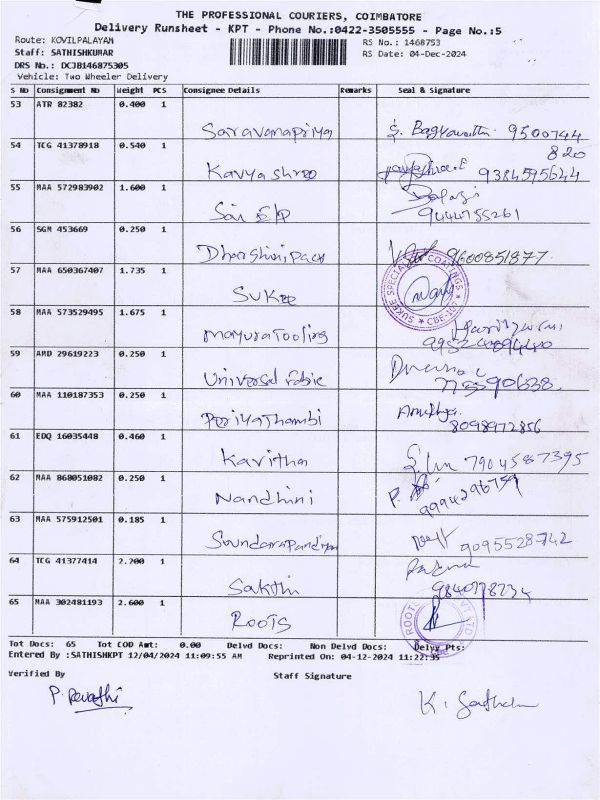 THE PROFESSIONAL COURIERS, COIMBATORE
Delivery Runsheet - KPT - Phone No.:0422-3505555 - Page No.:5
Route: KOVILPALAYAM
RS No.: 1468753
Staff: SATHISHKUMAR
RS Date: 04-Dec-2024
DRS No.: DCJB146875305
Vehicle: Two Wheeler Delivery
S No Consignment No Weight PCS Consignee Details Remarks Seal & Signature
53 ATR 82382 0.400 1
Saravanapriya 9500744
820
54 TCG 41378918 0.540 1
Kavya shree 9384595644
55 MAA 572983902 1.600 1
Sai Balaji
9444755261
56 SGM 453669 0.250 1
Dharshini pack 9600851877
57 MAA 650367407 1.735 1
SUKEE
SUKEE SPECIALITY COATINGS * CBE-107 *
58 MAA 573529495 1.675 1
Mayura Tooling
59 AMD 29619223 0.250 1
Universal Fabric
60 MAA 110187353 0.250 1
Periya Thambi 8098972856
61 EDQ 16035448 0.460 1
Kavitha 7904587395
62 MAA 868051082 0.250 1
Nandhini 9994296754
63 MAA 575912501 0.185 1
Soundarapandiyan 9095528742
64 TCG 41377414 2.200 1
Sakthi 9840778234
65 MAA 302481193 2.600 1
ROOTS
Tot Docs: 65 Tot COD Amt: 0.00 Delvd Docs: Non Delvd Docs: Delvy Pts:
Entered By :SATHISHKPT 12/04/2024 11:09:55 AM Reprinted On: 04-12-2024 11:22:35
Verified By Staff Signature
P. Revathi K. Sathish